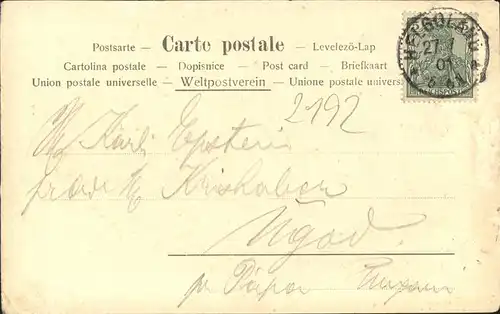 Postkarte — Carte postale — Levelezö-Lap
Cartolina postale — Dopisnice — Post card — Briefkaart
Union postale universelle — Weltpostverein — Unione postale univers
HELGOLAND
27 7
01
REICHSPOST
2192
Karli Epstein
Ugod.
pr Pápa